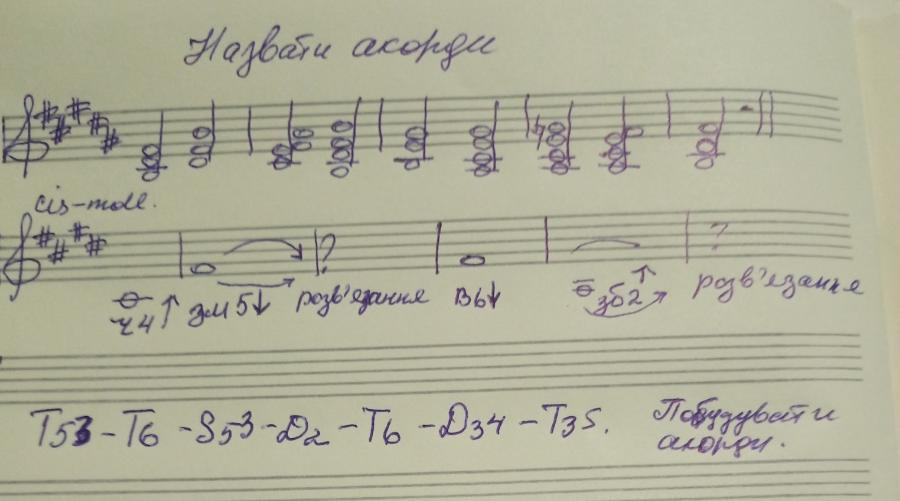 Назвати акорди
cis-moll.
? ?
ч4↑ зм5↓ розв'язання в6↓ зб2↑ розв'язання
T53 - T6 - S53 - D2 - T6 - D34 - T35. Побудувати
акорди.